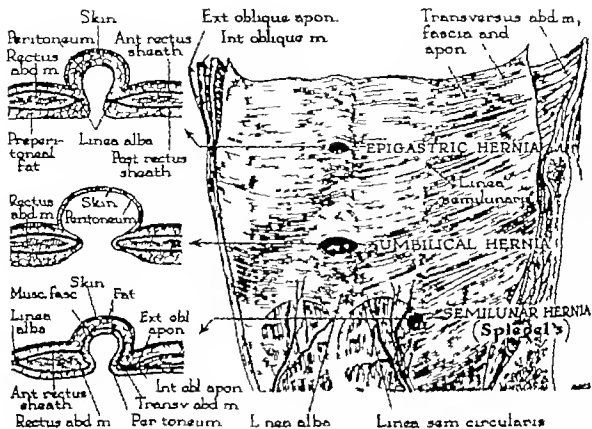 Skin
Peritoneum
Rectus
abd m
Ant rectus
sheath
Preperi-
toneal
Fat
Linea alba
Post rectus
sheath
Ext oblique apon.
Int oblique m
Transversus abd m,
fascia and
apon
EPIGASTRIC HERNIA
Linea
semilunaris
Rectus
abd m
Skin
Peritoneum
UMBILICAL HERNIA
Skin
Musc. fasc
Fat
Linea
alba
Ext obl
apon
SEMILUNAR HERNIA
(Spiegel's)
Ant rectus
sheath
Rectus abd m
Int obl apon
Transv abd m
Per toneum
L nea alba
Linea sem circularis